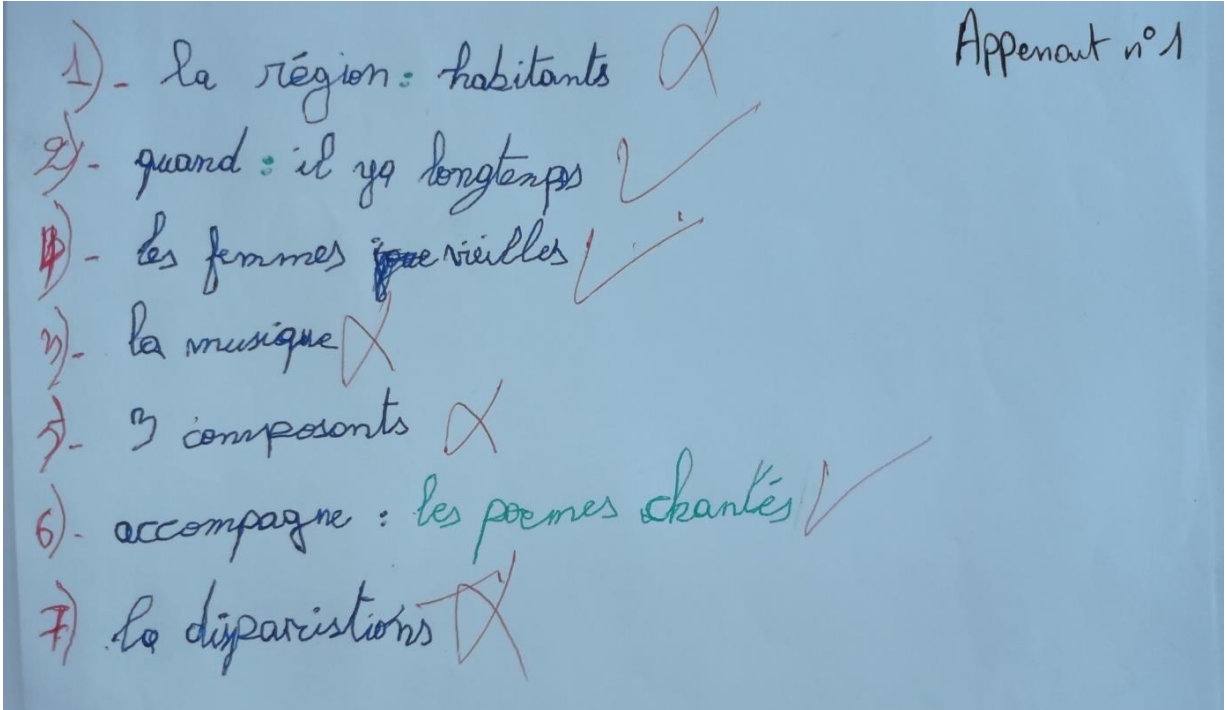 Appenant n° 1
1)- la région : habitants
2)- quand : il ya longtemps
4)- les femmes vieilles
3)- la musique
5)- 3 composants
6)- accompagne : les poemes chantés
7) la disparistions